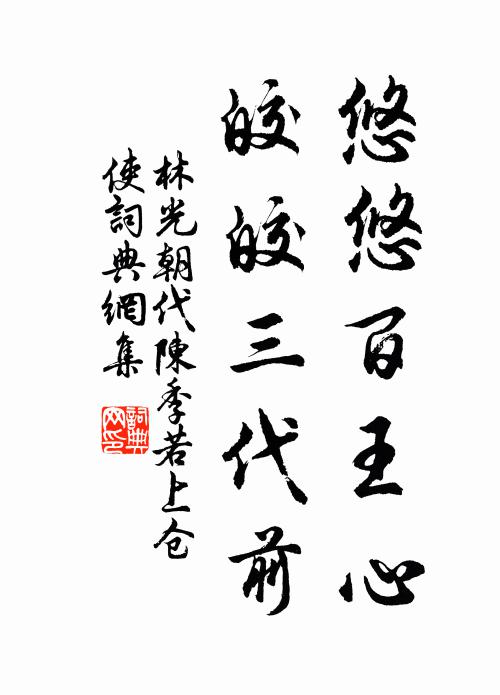 悠悠百王心
皎皎三代前
林光朝代陳季若上仓
使詞典網集
詞典网印